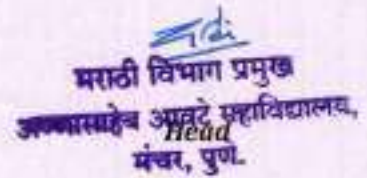 मराठी विभाग प्रमुख
अण्णासाहेब आवटे महाविद्यालय,
Head
मंचर, पुणे.